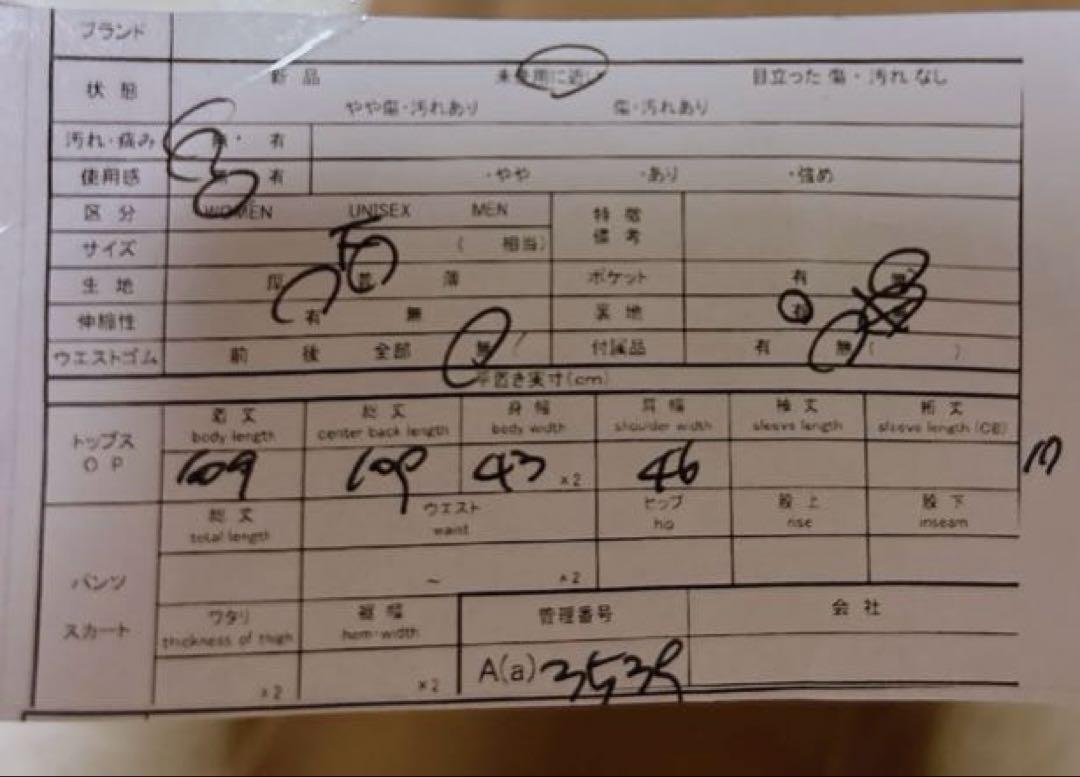 ブランド
状態 新品 未使用に近い 目立った傷・汚れなし
やや傷・汚れあり 傷・汚れあり
汚れ・痛み 無・有
使用感 無 有 ・やや ・あり ・強め
区分 WOMEN UNISEX MEN 特徴
備考
サイズ F (相当)
生地 厚 普 薄 ポケット 有 無
伸縮性 有 無 裏地 有 無
ウエストゴム 前 後 全部 無 付属品 有 無( )
平置き実寸(cm)
トップス
OP
着丈 総丈 身幅 肩幅 袖丈 裄丈
body length center back length body width shoulder width sleeve length sleeve length(CB)
109 109 43 ×2 46
総丈 ウエスト ヒップ 股上 股下
total length waist hip rise inseam
パンツ ~ ×2
スカート
ワタリ 裾幅 管理番号 会社
thickness of thigh hem-width
×2 ×2 A(a)3538